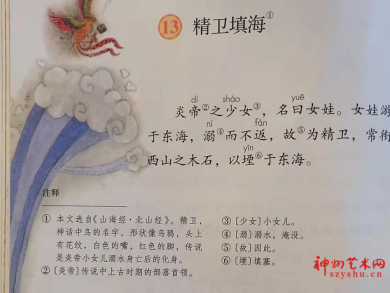 13 精卫填海①
dì shào yuē
炎帝②之少女③，名曰女娃。女娃游
nì fǎn
于东海，溺④而不返，故⑤为精卫，常衔
yīn
西山之木石，以堙⑥于东海。
注释
① 本文选自《山海经·北山经》。精卫，
神话中鸟的名字，形状像乌鸦，头上
有花纹，白色的嘴，红色的脚，传说
是炎帝小女儿溺水身亡后的化身。
② [炎帝] 传说中上古时期的部落首领。
③ [少女] 小女儿。
④ [溺] 溺水，淹没。
⑤ [故] 因此。
⑥ [堙] 填塞。
神州艺术网
szyshu.cn